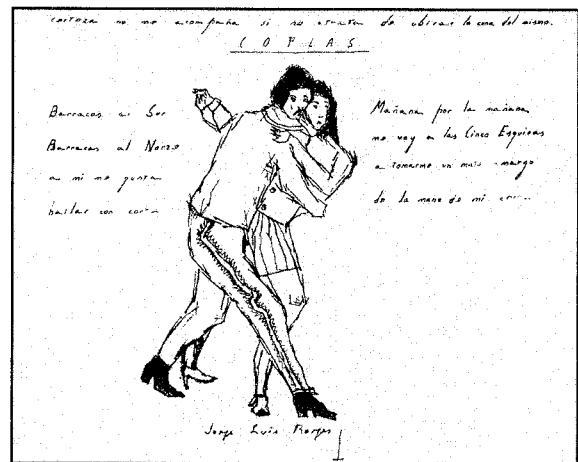 certeza no me acompaña si no de ubicar la cuna del mismo.
COPLAS
Barracas al Sur
Barracas al Norte
a mi me gusta
bailar con
Mañana por la mañana
me voy a las Cinco Esquinas
a tomarme un mate amargo
de la mano de mi
Jorge Luis Borges